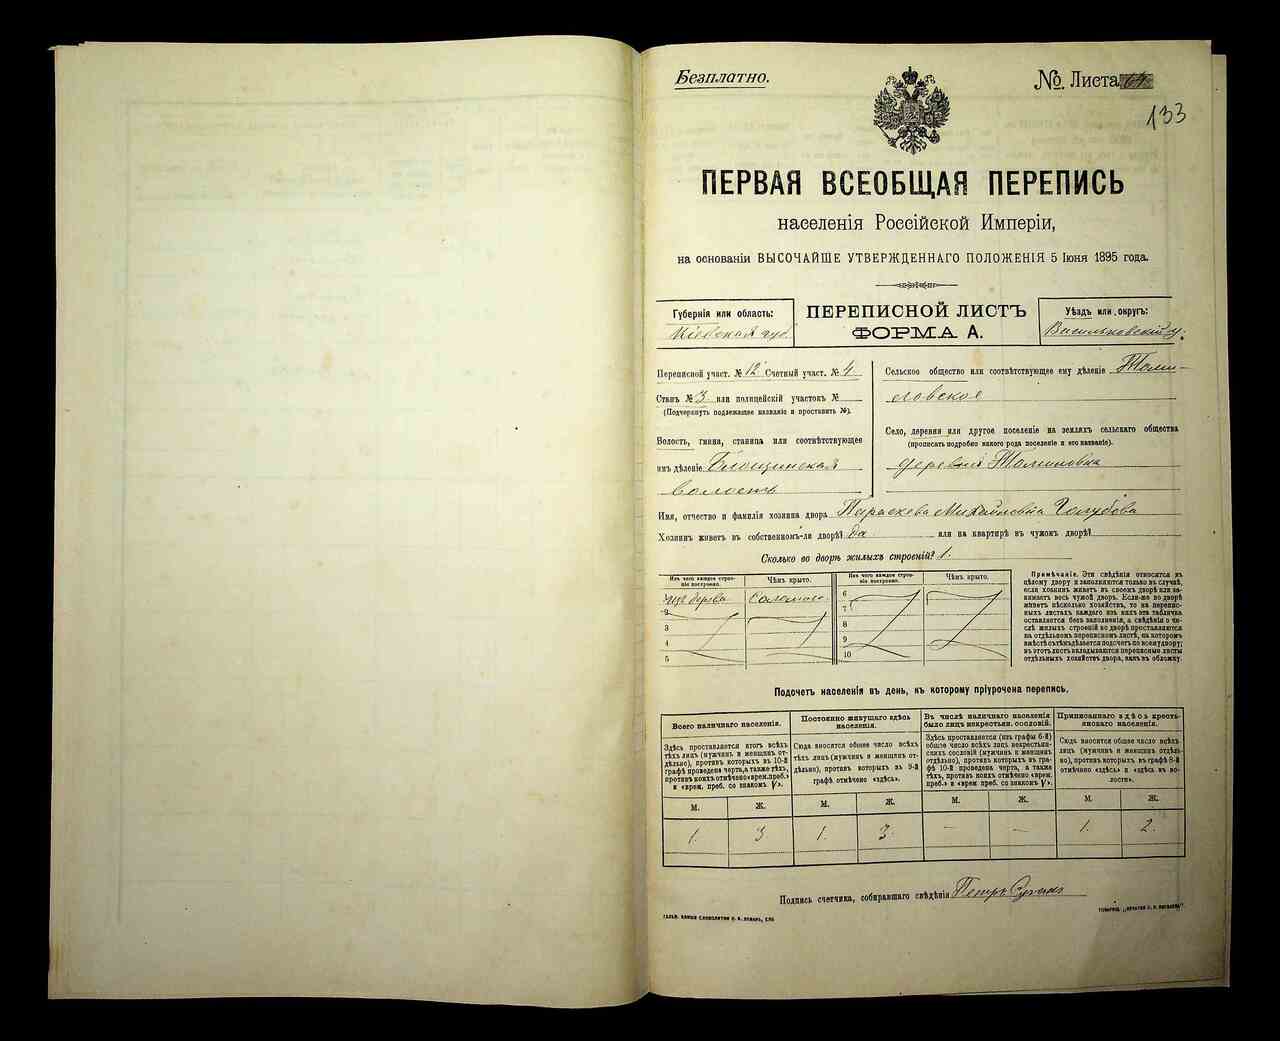 Безплатно.
№. Листа
133
ПЕРВАЯ ВСЕОБЩАЯ ПЕРЕПИСЬ
населенія Россійской Имперіи,
на основаніи ВЫСОЧАЙШЕ УТВЕРЖДЕННАГО ПОЛОЖЕНІЯ 5 Іюня 1895 года.
Губернія или область:
Кіевская губ.
ПЕРЕПИСНОЙ ЛИСТЪ
ФОРМА А.
Уѣздъ или округъ:
Васильковскій у.
Переписной участ. № 12 Счетный участ. № 4
Станъ № 3 или полицейскій участокъ №
(Подчеркнуть подлежащее названіе и проставить №).
Волость, гмина, станица или соотвѣтствующее
имъ дѣленіе Блощинская
волость
Сельское общество или соотвѣтствующее ему дѣленіе Томи-
ловское
Село, деревня или другое поселеніе на земляхъ сельскаго общества
(прописать подробно какого рода поселеніе и его названіе).
деревня Томиловка
Имя, отчество и фамилія хозяина двора Параскева Михайловна Голубова
Хозяинъ живетъ въ собственномъ-ли дворѣ? да или на квартирѣ въ чужомъ дворѣ?
Сколько во дворѣ жилыхъ строеній? 1.
Изъ чего каждое строе-
ніе построено.
Чѣмъ крыто.
Изъ чего каждое строе-
ніе построено.
Чѣмъ крыто.
изъ дерева соломою
2
3
4
5
6
7
8
9
10
Примѣчаніе. Эти свѣдѣнія относятся къ
цѣлому двору и заполняются только въ случаѣ,
если хозяинъ живетъ въ своемъ дворѣ или за-
нимаетъ весь чужой дворъ. Если-же во дворѣ
живетъ нѣсколько хозяйствъ, то на перепис-
ныхъ листахъ каждаго изъ нихъ эта табличка
оставляется безъ заполненія, а свѣдѣнія о чи-
слѣ жилыхъ строеній во дворѣ проставляются
на отдѣльномъ переписномъ листѣ, на которомъ
вмѣстѣ съ тѣмъ дѣлается подсчетъ по всему двору;
въ этотъ листъ вкладываются переписные листы
отдѣльныхъ хозяйствъ двора, какъ въ обложку.
Подсчетъ населенія въ день, къ которому пріурочена перепись.
Всего наличнаго населенія.
Постоянно живущаго здѣсь
населенія.
Въ числѣ наличнаго населенія
было лицъ некрестьян. сословій.
Приписаннаго здѣсь кресть-
янскаго населенія.
Здѣсь проставляется итогъ всѣхъ
лицъ (мужчинъ и женщинъ от-
дѣльно), противъ которыхъ въ 10-й
графѣ проведена черта, а также тѣхъ,
противъ коихъ отмѣчено «врем. преб.»
и «врем. преб. со знакомъ V».
Сюда вносится общее число всѣхъ
тѣхъ лицъ (мужчинъ и женщинъ от-
дѣльно), противъ которыхъ въ 9-й
графѣ отмѣчено «здѣсь».
Здѣсь проставляется (изъ графы 6-й)
общее число всѣхъ лицъ некрестьян-
скихъ сословій (мужчинъ и женщинъ
отдѣльно), противъ которыхъ въ гра-
фѣ 10-й проведена черта, а также
тѣхъ, противъ коихъ отмѣчено «врем.
преб.» и «врем. преб. со знакомъ V».
Сюда вносится общее число всѣхъ
лицъ (мужчинъ и женщинъ отдѣль-
но), противъ которыхъ въ графѣ 8-й
отмѣчено «здѣсь» и «здѣсь въ во-
лости».
М. Ж. М. Ж. М. Ж. М. Ж.
1. 3 1. 3. — — 1. 2.
Подпись счетчика, собиравшаго свѣдѣнія Петръ